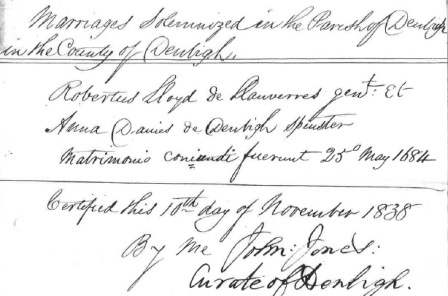 Marriages Solemnized in the Parish of Denbigh
in the County of Denbigh.
Robertus Lloyd de Llanverres gent: Et
Anna Davies de Denbigh Spinster
Matrimonio coniundi fuerunt 25º May 1684
Certified this 10th day of November 1838
By me John: Jones:
Curate of Denbigh.